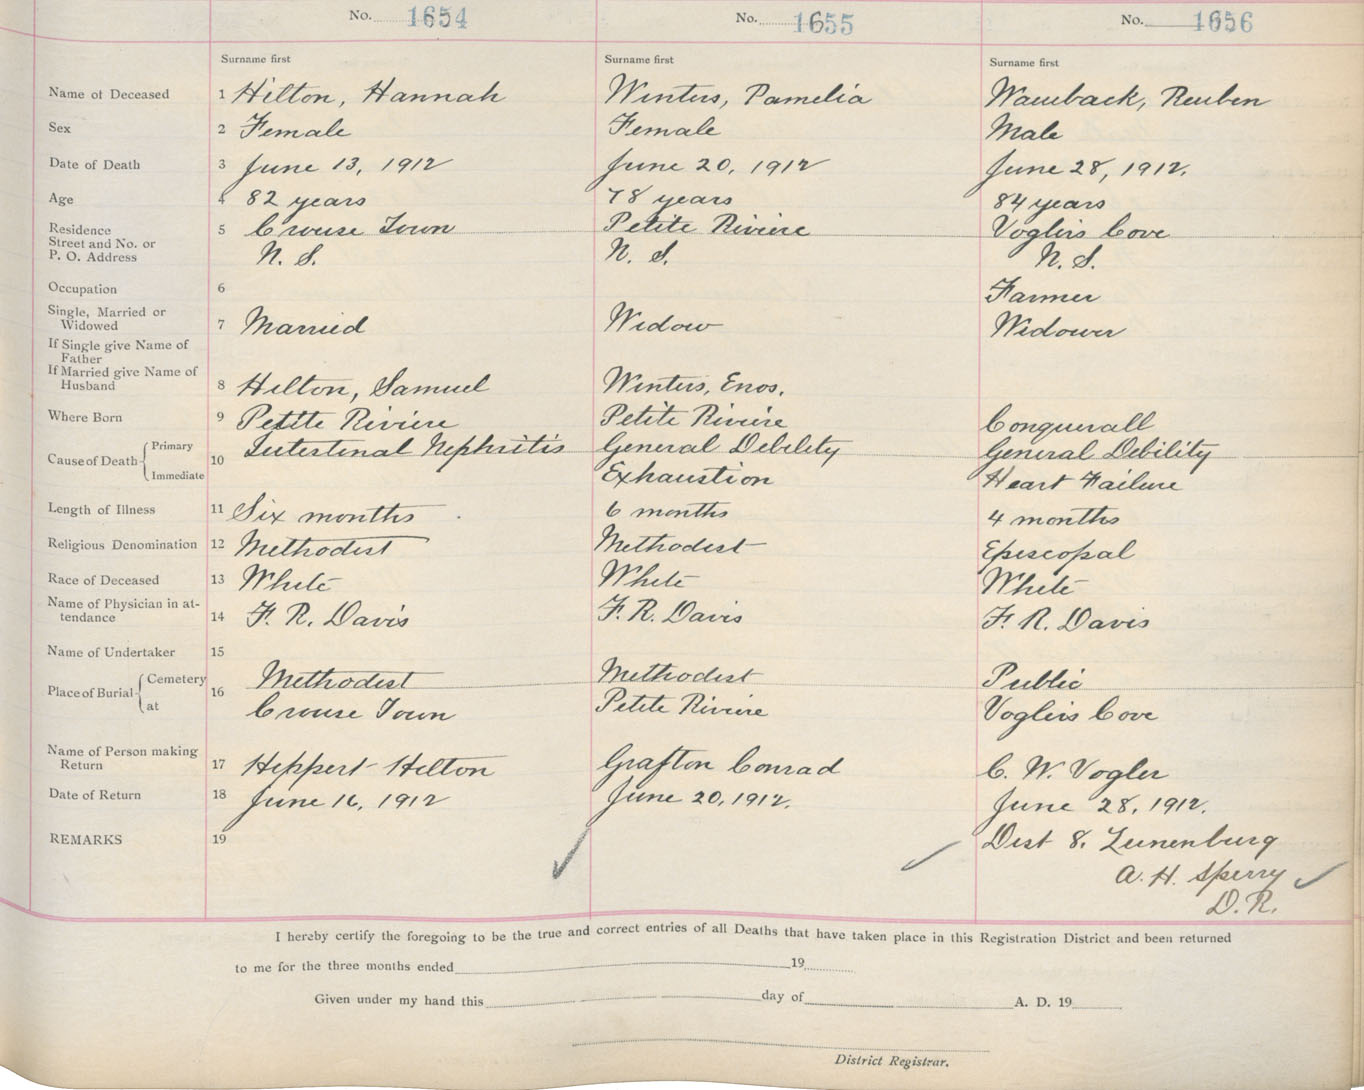 No. 1654 No. 1655 No. 1656
Surname first Surname first Surname first
Name of Deceased 1 Hilton, Hannah Winters, Pamelia Wambach, Reuben
Sex 2 Female Female Male
Date of Death 3 June 13, 1912 June 20, 1912 June 28, 1912.
Age 4 82 years 78 years 84 years
Residence 5 Crouse Town Petite Riviere Voglers Cove
Street and No. or
P. O. Address N. S. N. S. N. S.
Occupation 6 Farmer
Single, Married or
Widowed 7 Married Widow Widower
If Single give Name of
Father
If Married give Name of
Husband 8 Hilton, Samuel Winters, Enos.
Where Born 9 Petite Riviere Petite Riviere Conquerall
Cause of Death Primary 10 Intestinal Nephritis General Debility General Debility
Immediate Exhaustion Heart Failure
Length of Illness 11 Six months 6 months 4 months
Religious Denomination 12 Methodist Methodist Episcopal
Race of Deceased 13 White White White
Name of Physician in at-
tendance 14 F. R. Davis F. R. Davis F. R. Davis
Name of Undertaker 15
Place of Burial Cemetery 16 Methodist Methodist Public
at Crouse Town Petite Riviere Voglers Cove
Name of Person making
Return 17 Heppert Hilton Grafton Conrad C. W. Vogler
Date of Return 18 June 16, 1912 June 20, 1912. June 28, 1912.
REMARKS 19 Dist 8. Lunenburg
A. H. Sperry
D. R.
I hereby certify the foregoing to be the true and correct entries of all Deaths that have taken place in this Registration District and been returned
to me for the three months ended 19
Given under my hand this day of A. D. 19
District Registrar.